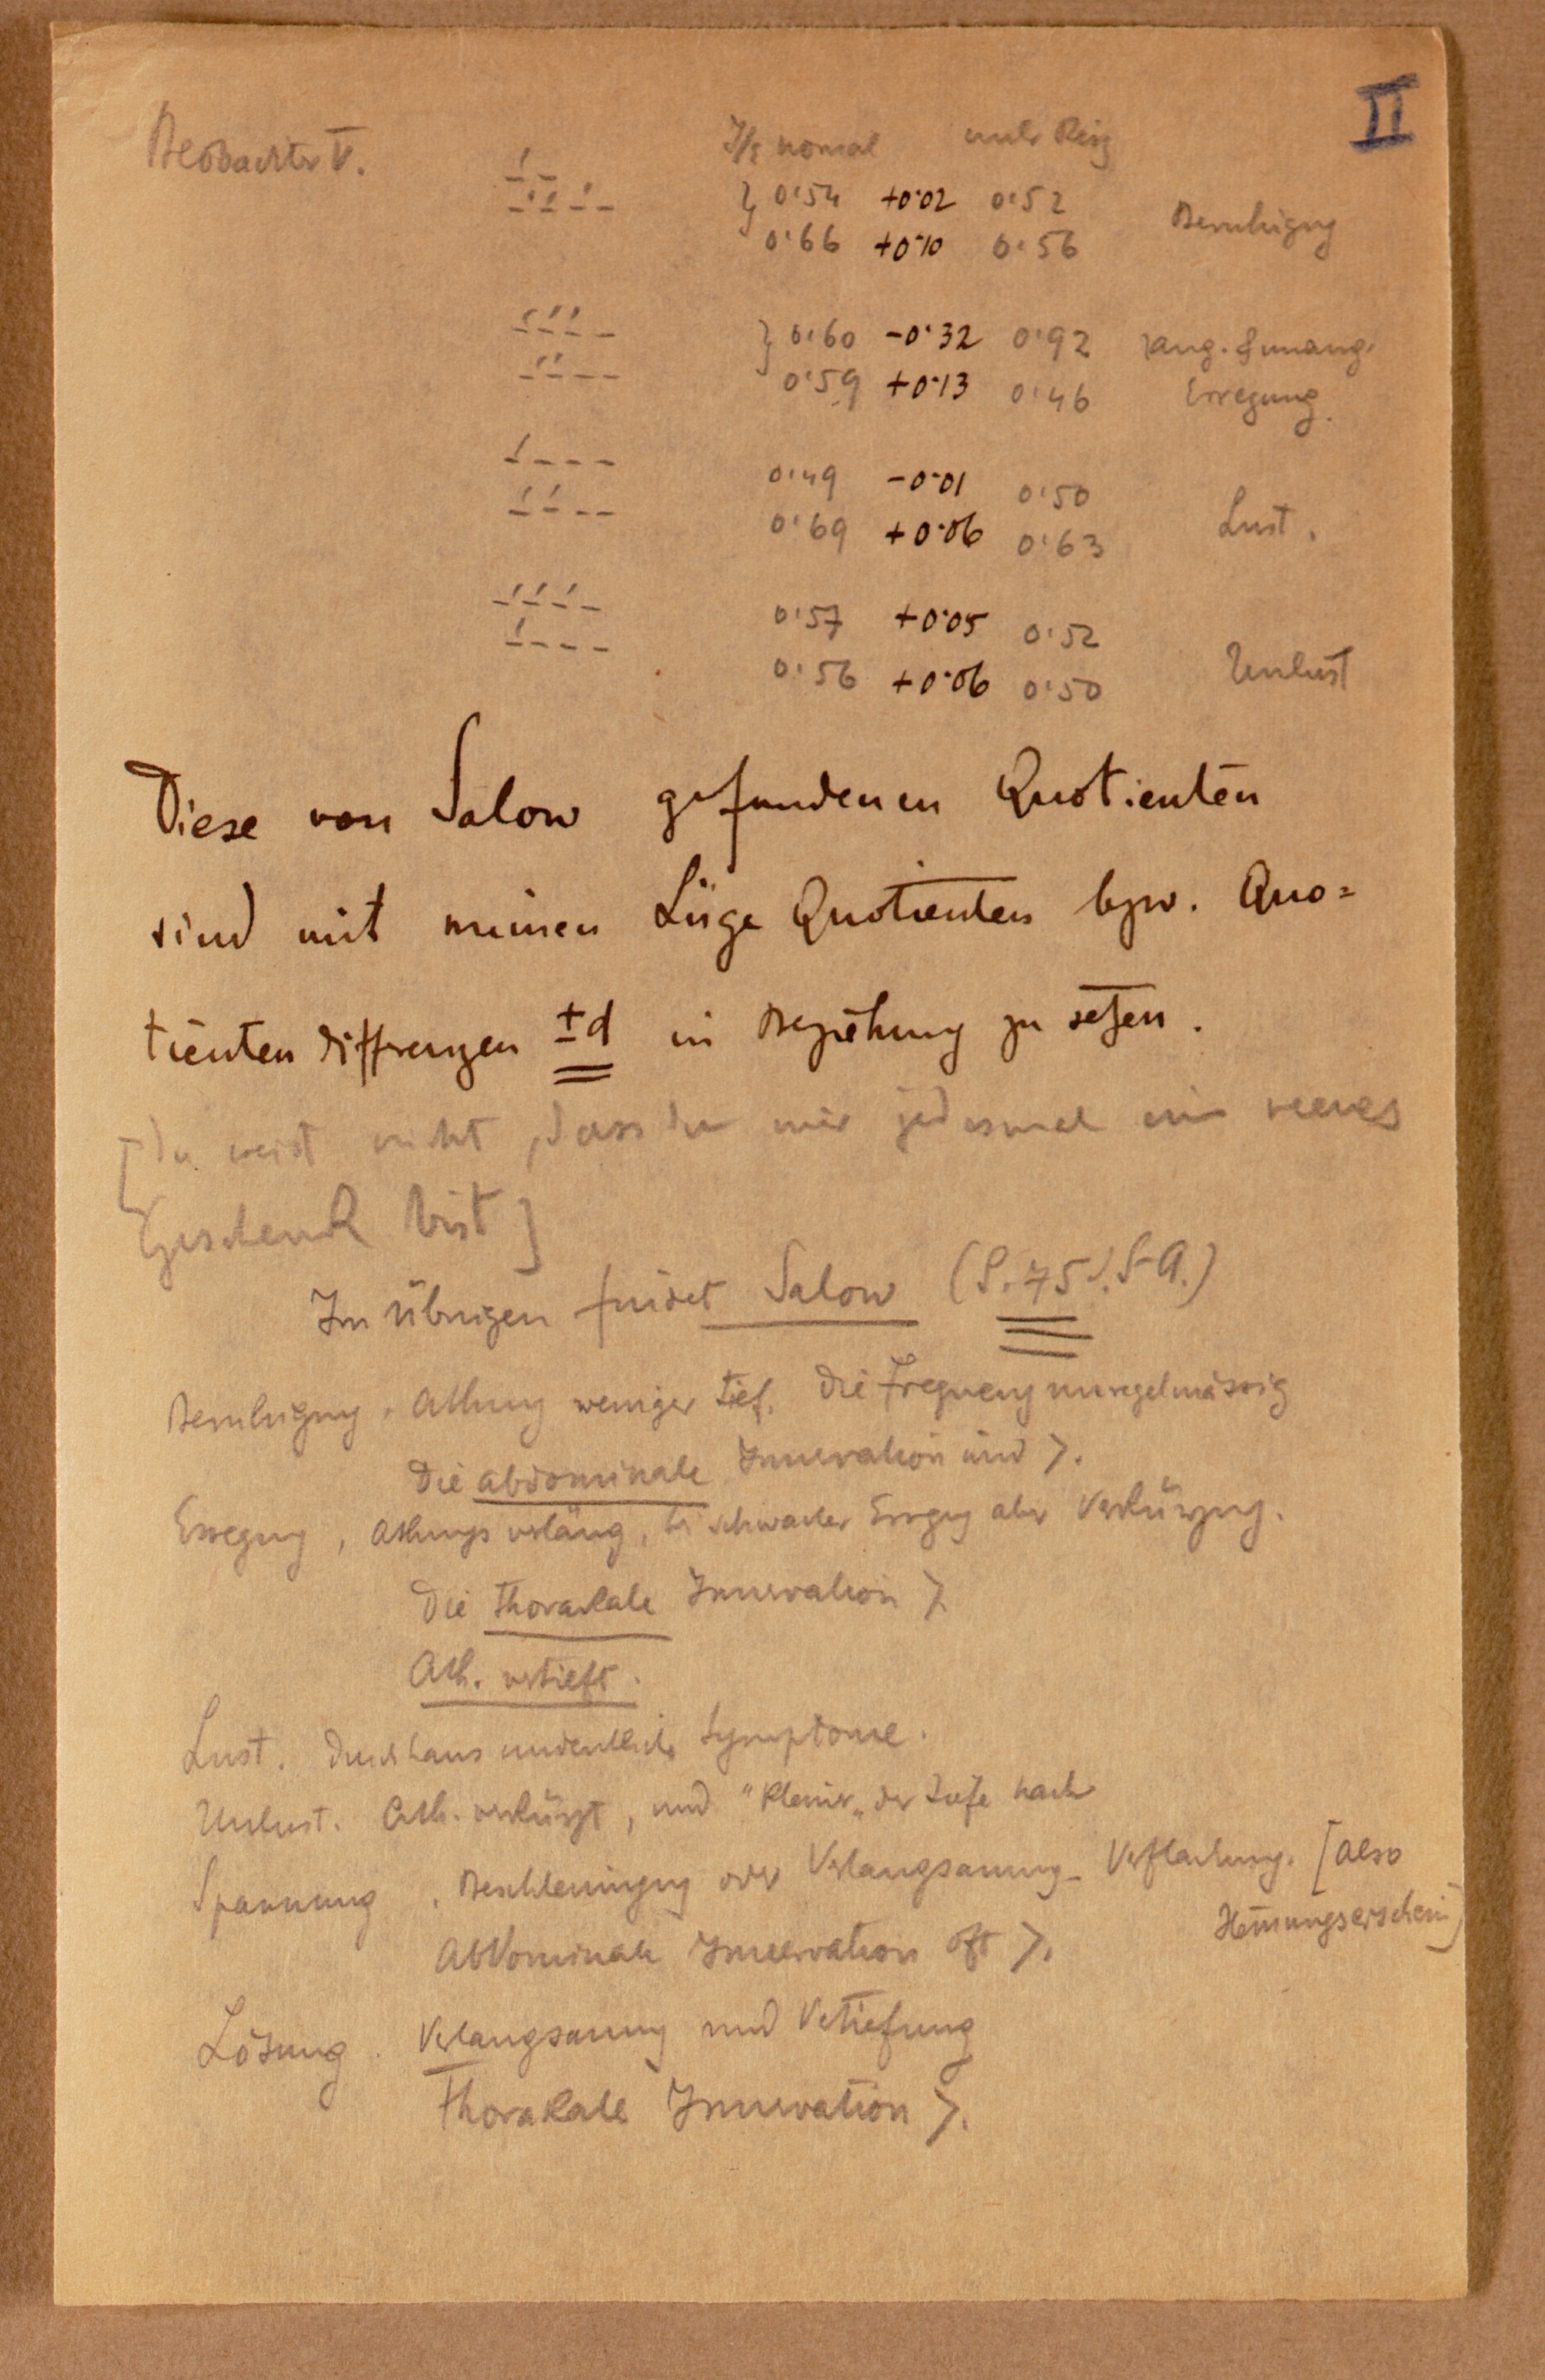 II
Beobachter V. J/E normal und Reiz
} 0·54 +0·02 0·52 Beruhigung
0·66 +0·10 0·56
} 0·60 -0·32 0·92 } ang. & unang.
0·59 +0·13 0·46 Erregung.
0·49 -0·01 0·50
0·69 +0·06 0·63 Lust.
0·57 +0·05 0·52
0·56 +0·06 0·50 Unlust
Diese von Salow gefundenen Quotienten
sind mit meinen Lüge Quotienten bzw. Quo=
tienten differenzen ±d in Beziehung zu setzen.
[Du weist nicht, dass du mir jedesmal ein neues
Geschenk bist]
Im Übrigen findet Salow (S. 75 S-A.)
Beruhigung, Athung weniger tief. Die Frequenz unregelmässig
Die abdominale Innervation wird >.
Erregung, Athungs verläng, bei schwacher Erregg aber Verkürzung.
Die thorakale Innervation >
Ath. vertieft.
Lust. Durchaus undeutliche Symptome.
Unlust. Ath. verkürzt, und "kleiner" der Tiefe nach
Spannung, Beschleunigung oder Verlangsamung. Verflachung. [also
Hemungserschein]
Abdominale Innervation oft >.
Lösung. Verlangsamung und Vertiefung
Thorakale Innervation >.